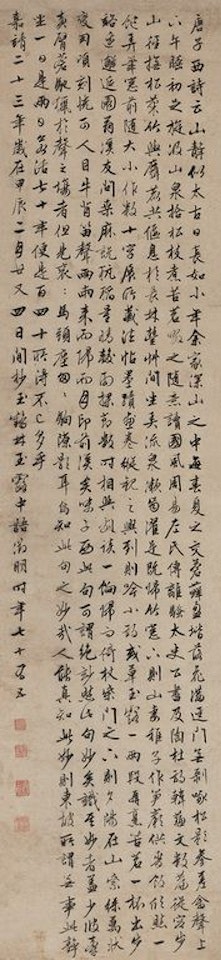 唐子西詩云山靜似太古日長如小年余家深山之中每春夏之交蒼蘚盈堦落花滿逕門無剝啄松影參差禽聲上
下午睡初足旋汲山泉拾松枝煮苦茗啜之隨意讀國風周易左氏傳離騷太史公書及陶杜詩韓蘇文數篇從容步
山徑撫松竹與麛犢共偃息於長林豐草間坐弄流泉漱齒濯足既歸竹窗下則山妻稚子作筍蕨供麥飯欣然一
飽弄筆窗前隨大小作數十字展所藏法帖墨蹟畫卷縱觀之興到則吟小詩或草玉露一兩段再烹苦茗一杯出步
溪邊邂逅園翁溪友問桑麻說秔稻量晴校雨探節數時相與劇談一餉歸而倚杖柴門之下則夕陽在山紫綠萬狀
變幻頃刻恍可人目牛背笛聲兩兩來歸而月印前溪矣味子西此句可謂絕妙然此句妙矣識其妙者蓋少彼牽
黃臂蒼馳獵於聲利之場者但見袞袞馬頭塵匆匆駒隙影耳烏知此句之妙哉人能真知此妙則東坡所謂無事此靜
坐一日是兩日若活七十年便是百四十所得不已多乎
嘉靖二十三年歲在甲辰二月廿又四日閒抄玉鶴林玉露中語徵明時年七十有五